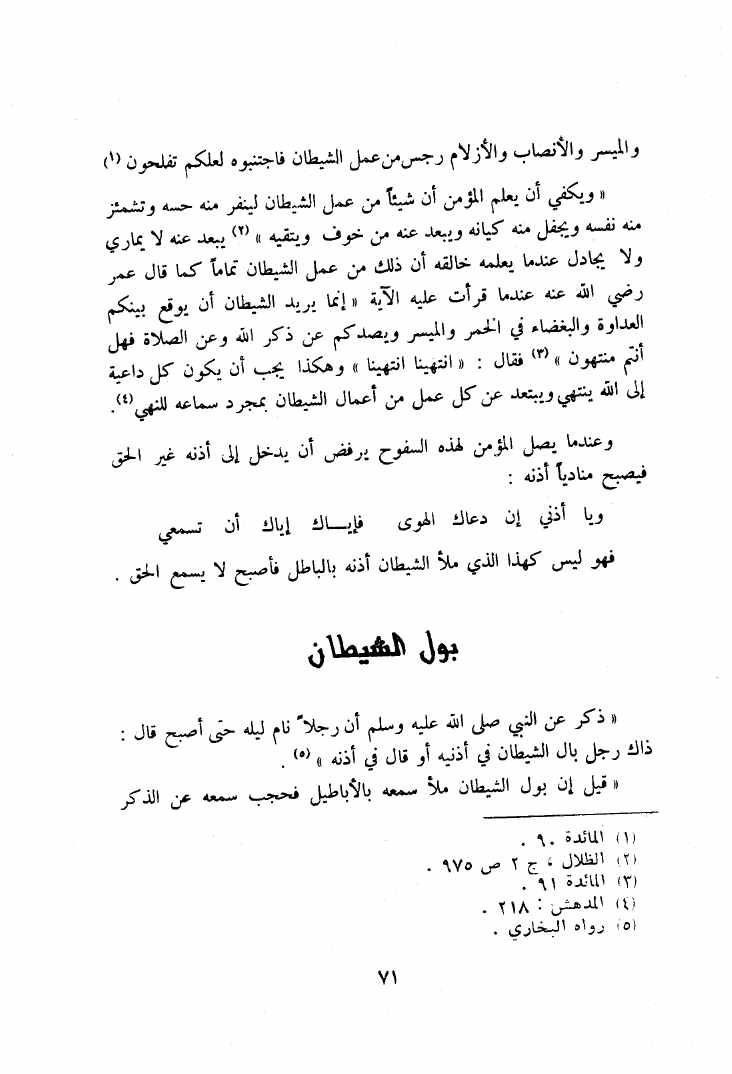 والميسر والأنصاب والأزلام رجس من عمل الشيطان فاجتنبوه لعلكم تفلحون (١)
« ويكفي أن يعلم المؤمن أن شيئاً من عمل الشيطان لينفر منه حسه وتشمئز
منه نفسه ويجفل منه كيانه ويبعد عنه من خوف ويتقيه » (٢) يبعد عنه لا يماري
ولا يجادل عندما يعلمه خالقه أن ذلك من عمل الشيطان تماماً كما قال عمر
رضي الله عنه عندما قرأت عليه الآية « إنما يريد الشيطان أن يوقع بينكم
العداوة والبغضاء في الخمر والميسر ويصدكم عن ذكر الله وعن الصلاة فهل
أنتم منتهون » (٣) فقال : « انتهينا انتهينا » وهكذا يجب أن يكون كل داعية
إلى الله ينتهي ويبتعد عن كل عمل من أعمال الشيطان بمجرد سماعه للنهي (٤).
وعندما يصل المؤمن لهذه السفوح يرفض أن يدخل إلى أذنه غير الحق
فيصبح منادياً أذنه :
ويا أذني إن دعاك الهوى فإيـــاك إياك أن تسمعي
فهو ليس كهذا الذي ملأ الشيطان أذنه بالباطل فأصبح لا يسمع الحق .
بول الشيطان
« ذكر عن النبي صلى الله عليه وسلم أن رجلاً نام ليله حتى أصبح قال :
ذاك رجل بال الشيطان في أذنيه أو قال في أذنه » (٥) .
« قيل إن بول الشيطان ملأ سمعه بالأباطيل فحجب سمعه عن الذكر
(١) المائدة ٩٠ .
(٢) الظلال ، ج ٢ ص ٩٧٥ .
(٣) المائدة ٩١ .
(٤) المدهش : ٢١٨ .
(٥) رواه البخاري .
٧١